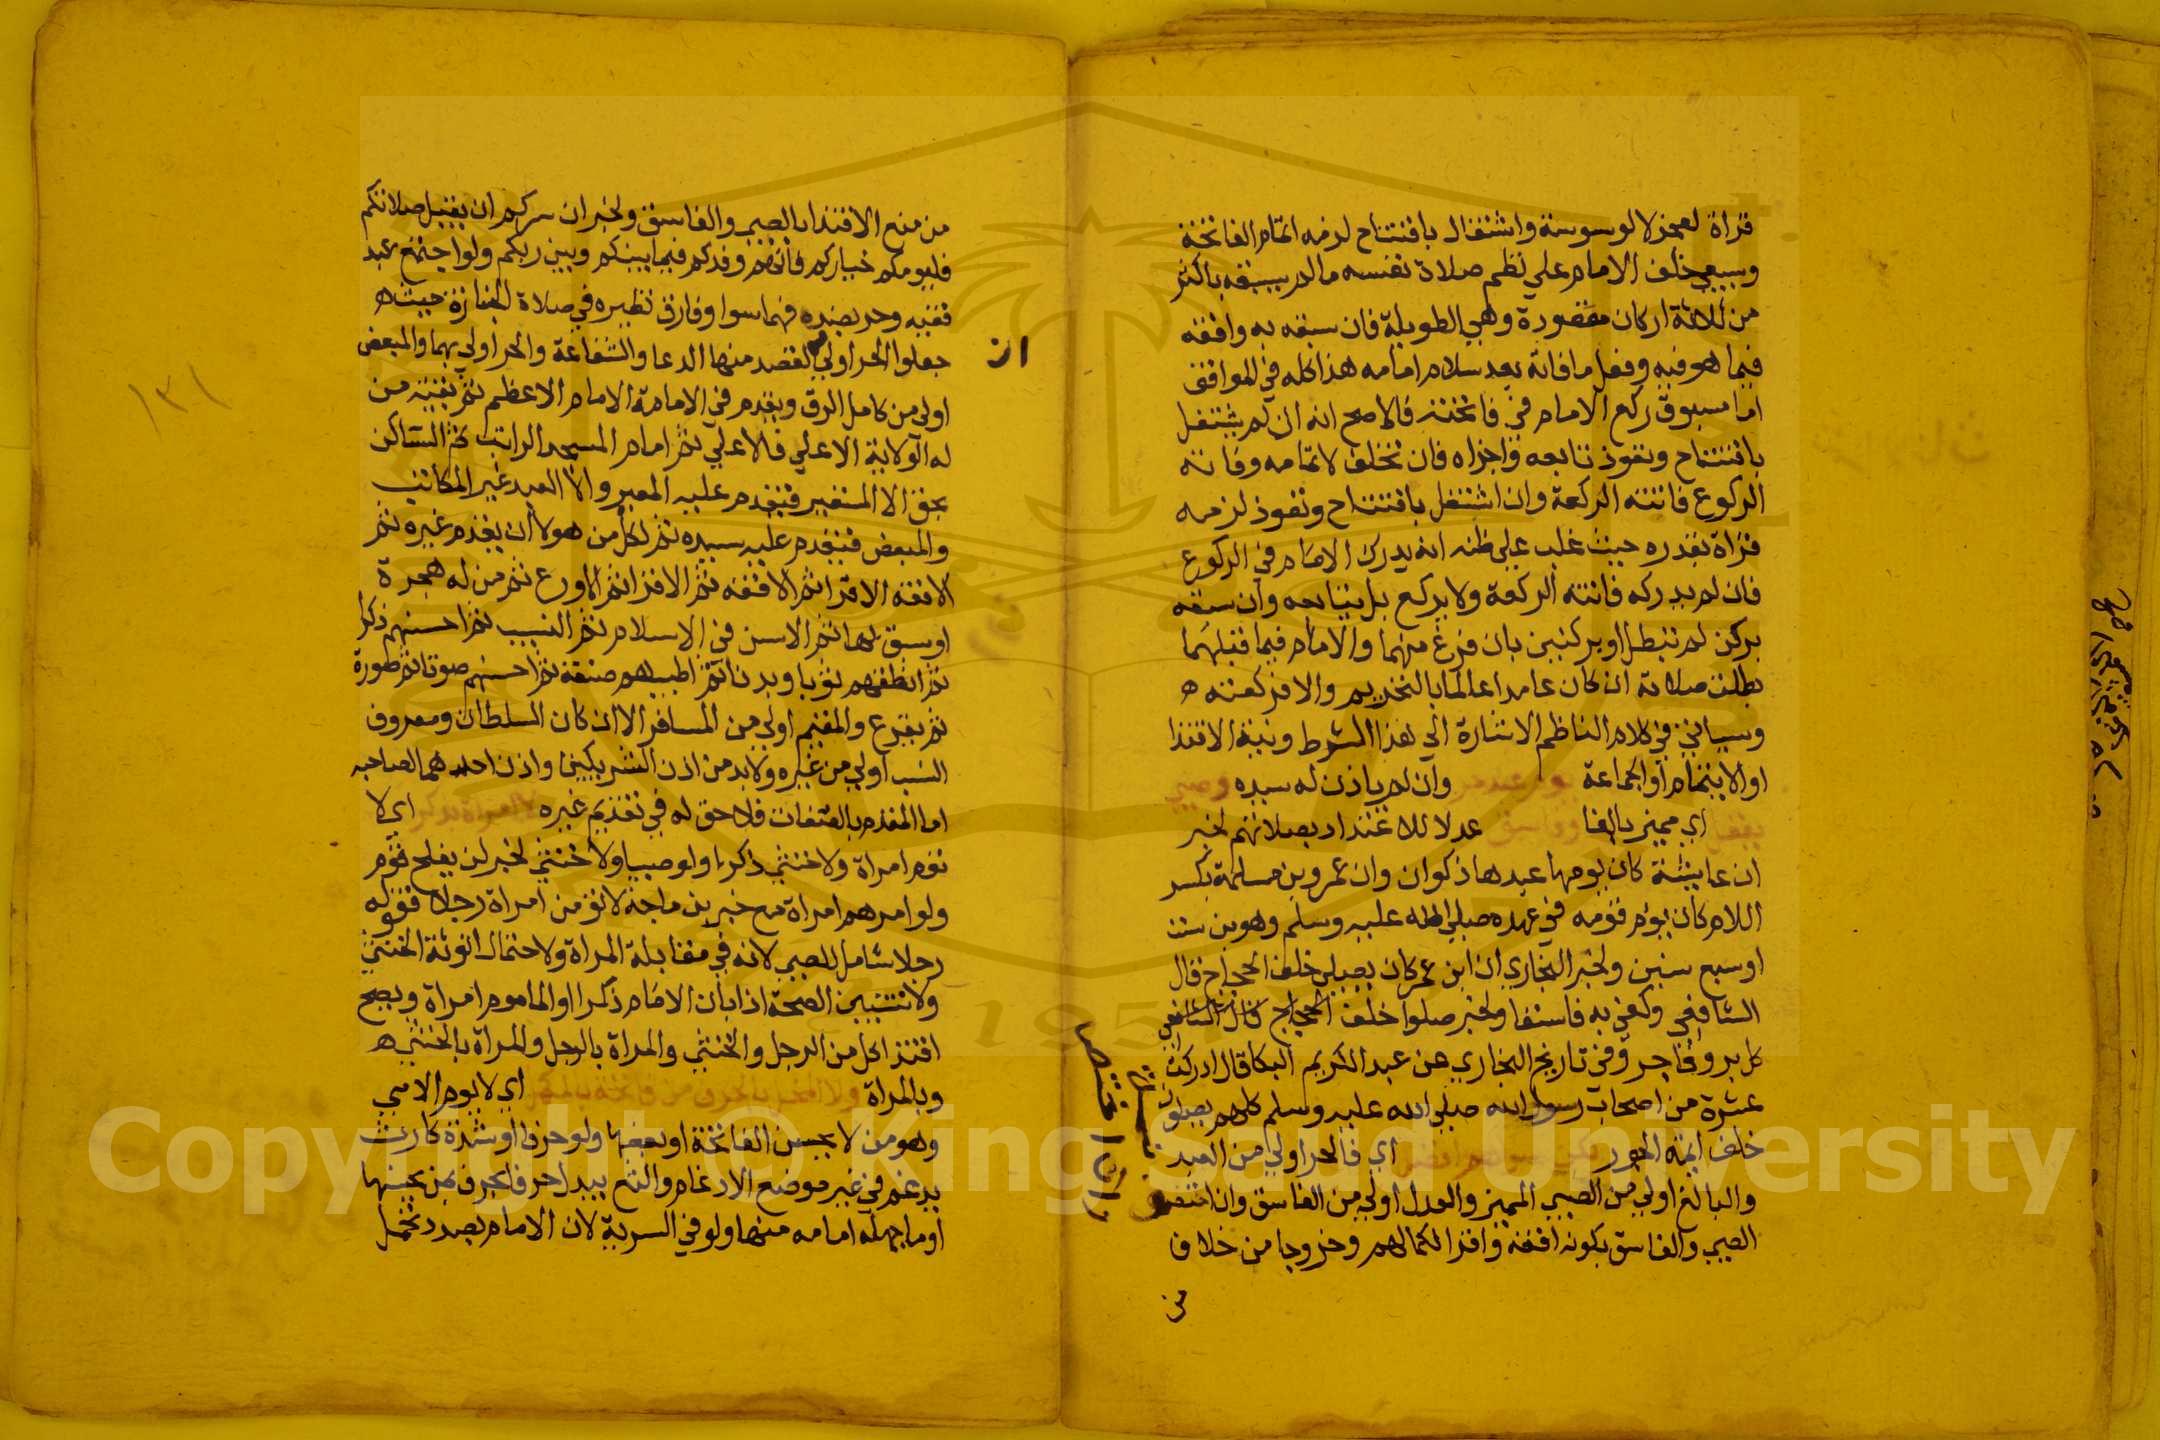 قراة لعجز لا لوسوسة واشتغال بافتتاح لزمه اتمام الفاتحة
ويسعي خلف الامام علي نظم صلاة نفسه مالم يسبقه باكثر
من ثلاثة اركان مقصودة وهي الطويلة فان سبقه به وافقه
فيما هو فيه وفعل ما فاته بعد سلام امامه هذا كله في الموافق
اما مسبوق ركع الامام في فاتحته فالاصح انه ان لم يشتغل
بافتتاح وتعوذ تابعه واجزاه فان تخلف لاتمامه وفاته
الركوع فاتته الركعة وان اشتغل بافتتاح وتعوذ لزمه
قراة بقدره حيث غلب علي ظنه انه يدرك الامام في الركوع
فان لم يدركه فاتته الركعة ولا يركع بل يتابعه وان سبقه
بركن لم تبطل او بركنين بان فرغ منهما والامام فيما قبلهما
بطلت صلاته ان كان عامدا عالما بالتحريم والا فركعته ه
وسياتي في كلام الناظم الاشارة الي هذا الشرط ونية الاقتدا
او الايتمام او الجماعة وان لم ياذن له سيده وصبي
يعقل اي مميز بالغا وفاسق عدلا للاعتداد بصلاتهم لخبر
ان عايشة كان يومها عبدها ذكوان وان عمرو بن مسلمة بكسر
اللام كان يوم قومه في عهده صلي الله عليه وسلم وهو بن ست
او سبع سنين ولخبر البخاري ان ابن عمر كان يصلي خلف الحجاج قال
الشافعي وكفي به فاسقا ولخبر صلوا خلف الحجاج قال الشافعي
كل بر وفاجر وفي تاريخ البخاري عن عبد الكريم البكا قال ادركت
عشرة من اصحاب رسول الله صلي الله عليه وسلم كلهم يصلون
خلف ايمة الجور اي فالحر اولي من العبد
والبالغ اولي من الصبي المميز والعدل اولي من الفاسق وان اختص
الصبي والفاسق بكونه افقه واقرا لكمالهم وخروجا من خلاف
من
من منع الاقتدا بالصبي والفاسق ولخبر ان سركم ان يقبل صلاتكم
فليومكم خياركم فانهم وفدكم فيما بينكم وبين ربكم ولو اجتمع عبد
فقيه وحر بضده فهما سوا وفارق نظيره في صلاة الجنازة حيث ه
جعلوا الحر اولي القصد منها الدعا والشفاعة والحر اولي بهما والمبعض
ان
اولي من كامل الرق ويقدم في الامامة الامام الاعظم ثم بقية من
له الولاية الاعلي فالاعلي ثم امام المسجد الراتب ثم الساكن
بحق الا المستعير فيقدم عليه المعير والا العبد غير المكاتب
والمبعض فيقدم عليه سيده ثم لكل من هولا ان يقدم غيره ثم
الافقه الاقرا ثم الافقه ثم الاقرا ثم الاورع ثم من له هجرة
او سبق بها ثم الاسن في الاسلام ثم النسيب ثم احسنهم ذكرا
ثم انظفهم ثوبا وبدنا ثم اطيبهم صنعة ثم احسنهم صوتا ثم صورة
ثم يقرع والمقيم اولي من المسافر الا ان كان السلطان ومعروف
النسب اولي من غيره ولا بد من اذن الشريكين او اذن احدهما لصاحبه
اما المقدم بالصفات فلا حق له في تقديم غيره لا امراة بذكر اي لا
توم امراة ولا خنثي ذكرا ولو صبيا ولا خنثي لخبر لن يفلح قوم
ولوا امرهم امراة مع خبر بن ماجة لا تومن امراة رجلا فقوله
رجلا شامل للصبي لانه في مقابلة المراة ولاحتمال انوثة الخنثي
ولا تتبين الصحة اذا بان الامام ذكرا او الماموم امراة ويصح
اقتدا كل من الرجل والخنثي والمراة بالرجل والمراة بالخنثي ه
وبالمراة ولا المخل بالحرف من فاتحة بالمكمل اي لا يوم الامي
وهو من لا يحسن الفاتحة او بعضها ولو حرفا او شدة كارت
يدغم في غير موضع الادغام والثغ يبدل حرفا بحرف بمن يحسنها
او ما جهله امامه منها ولو في السرية لان الامام بصدد تحمل
١٣١